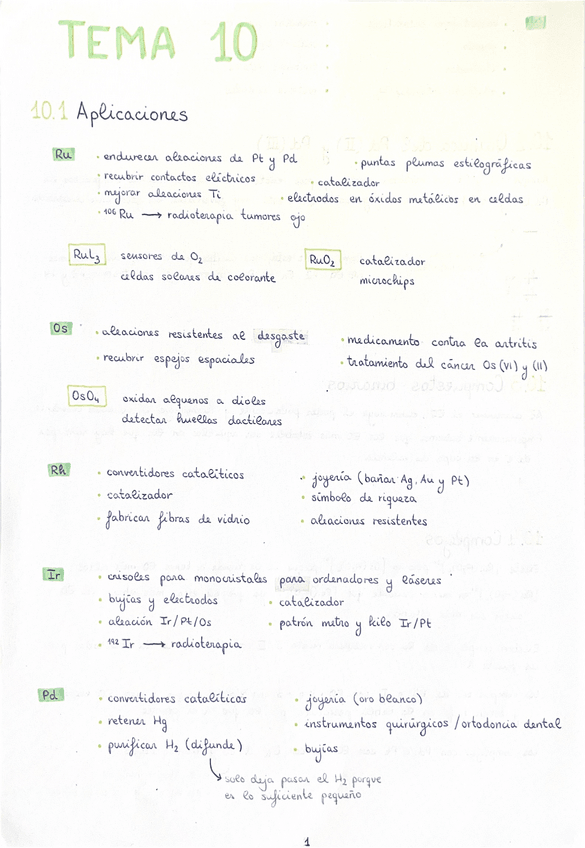 TEMA 10
10.1 Aplicaciones
Ru
• endurecer aleaciones de Pt y Pd • puntas plumas estilográficas
• recubrir contactos eléctricos • catalizador
• mejorar aleaciones Ti • electrodos en óxidos metálicos en celdas
• ¹⁰⁶Ru → radioterapia tumores ojo
RuL₃ sensores de O₂
celdas solares de colorante
RuO₂ catalizador
microchips
Os
• aleaciones resistentes al desgaste • medicamento contra la artritis
• recubrir espejos espaciales • tratamiento del cáncer Os (VI) y (II)
OsO₄ oxidar alquenos a dioles
detectar huellas dactilares
Rh
• convertidores catalíticos • joyería (bañar Ag, Au y Pt)
• catalizador • símbolo de riqueza
• fabricar fibras de vidrio • aleaciones resistentes
Ir
• crisoles para monocristales para ordenadores y láseres
• bujías y electrodos • catalizador
• aleación Ir/Pt/Os • patrón metro y kilo Ir/Pt
• ¹⁹²Ir → radioterapia
Pd
• convertidores catalíticos • joyería (oro blanco)
• retener Hg • instrumentos quirúrgicos / ortodoncia dental
• purificar H₂ (difunde) • bujías
solo deja pasar el H₂ porque
es lo suficiente pequeño
1